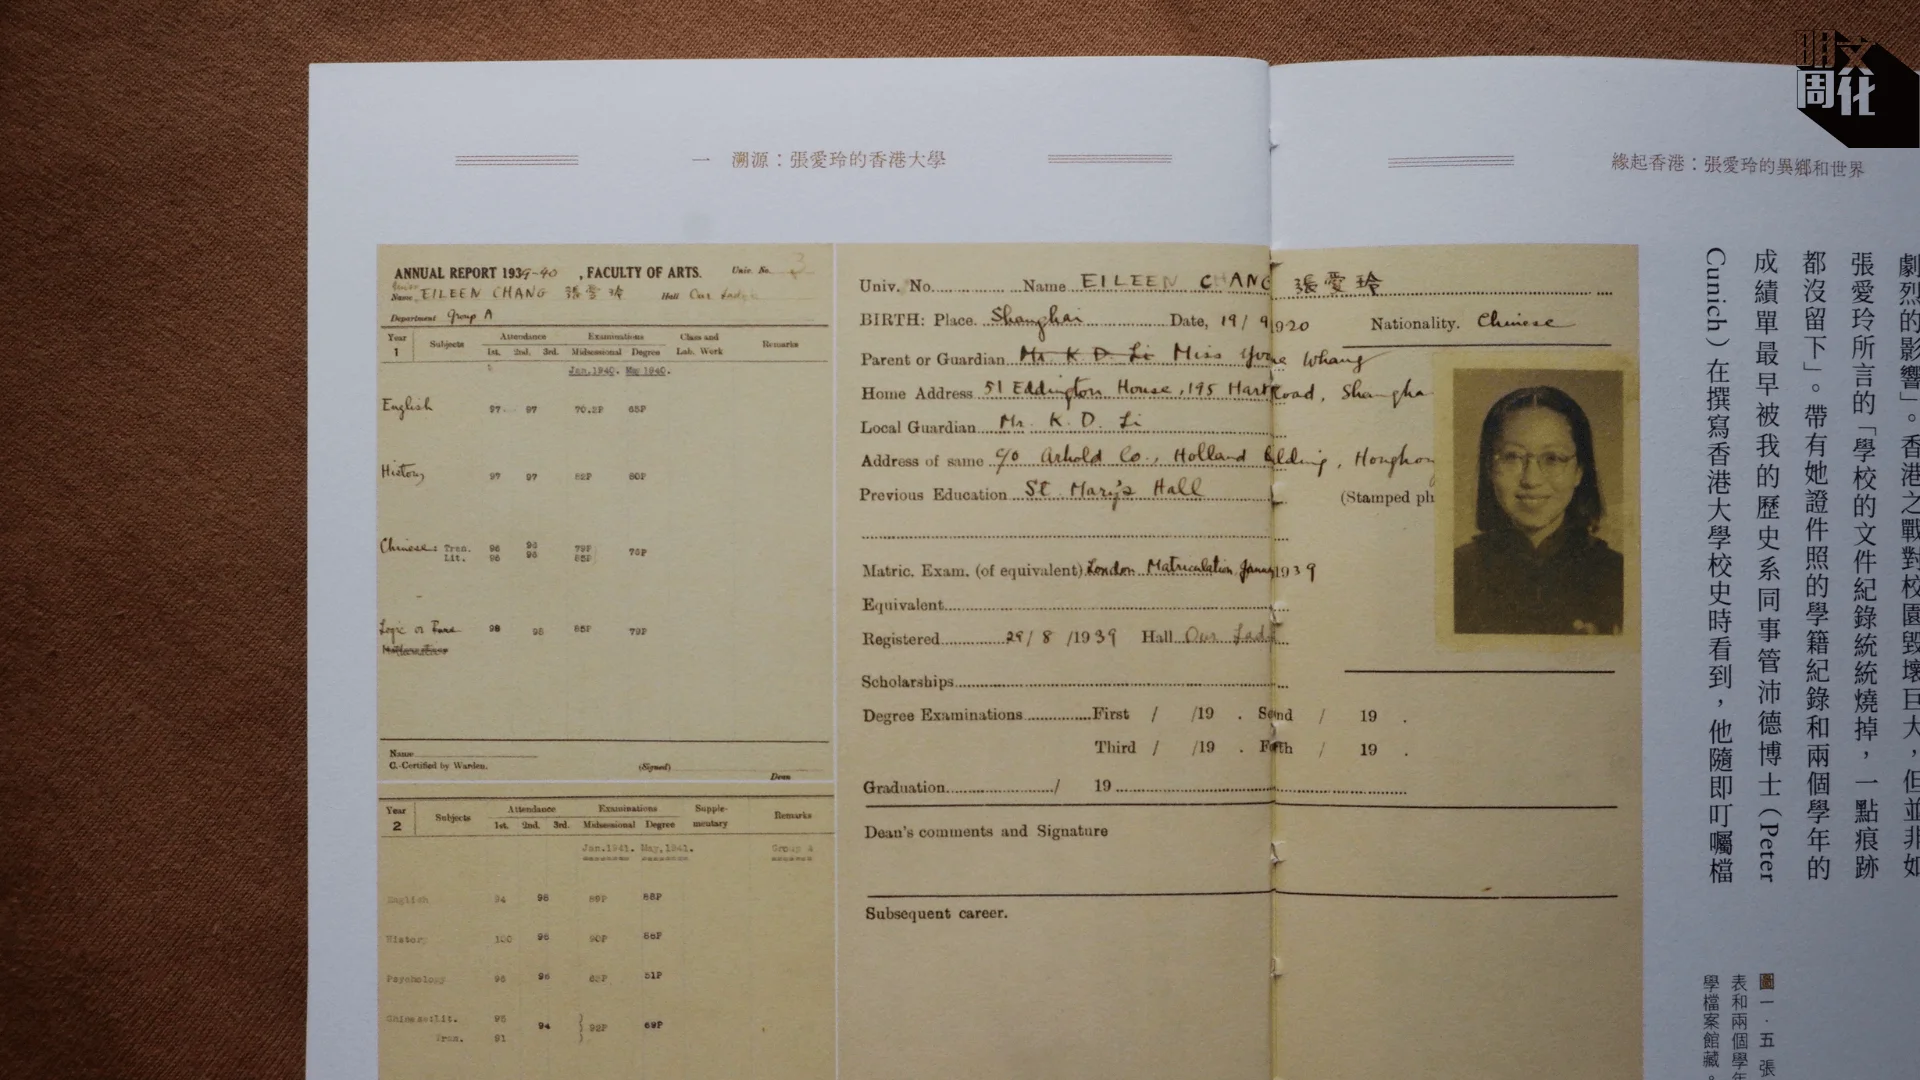 明周文化
一 溯源：張愛玲的香港大學
緣起香港：張愛玲的異鄉和世界
ANNUAL REPORT 1939-40, FACULTY OF ARTS. Univ. No. 3
Name EILEEN CHANG 張愛玲 Hall Our Lady
Department Group A
Year 1 Subjects Attendance 1st. 2nd. 3rd. Examinations Midsessional Degree Class and Lab. Work Remarks
Jan.1940. May 1940.
English 97 97 70.2P 65P
History 97 97 82P 80P
Chinese Tran. 96 96 79P 76P
Lit. 96 96 85P
Logic or Pure 98 98 85P 79P
Name
C.-Certified by Warden. (Signed) Dean
Year 2 Subjects Attendance 1st. 2nd. 3rd. Examinations Midsessional Degree Supplementary Remarks
Jan.1941. May,1941. Group A
English 94 98 89P 88P
History 100 96 90P 86P
Psychology 96 96 51P
Chinese:Lit. 95 94 92P 69P
Tran. 91
Univ. No. Name EILEEN CHANG 張愛玲
BIRTH: Place. Shanghai Date, 19/9/1920 Nationality. Chinese
Parent or Guardian Mr. K. D. Li Miss Yvone Whang
Home Address 51 Eddington House, 195 Hart Road, Shangha
Local Guardian Mr. K. D. Li
Address of same c/o Arnhold Co., Holland Building, Hongkong
Previous Education St. Mary's Hall
(Stamped ph
Matric. Exam. (of equivalent) London Matriculation, January 1939
Equivalent
Registered 29/8/1939 Hall Our Lady
Scholarships
Degree Examinations First / /19 . Second / 19 .
Third / /19 . Fourth / 19 .
Graduation / 19
Dean's comments and Signature
Subsequent career.
劇烈的影響」。香港之戰對校園毀壞巨大，但並非如
張愛玲所言的「學校的文件紀錄統統燒掉，一點痕跡
都沒留下」。帶有她證件照的學籍紀錄和兩個學年的
成績單最早被我的歷史系同事管沛德博士（Peter
Cunich）在撰寫香港大學校史時看到，他隨即叮囑檔
圖一．五 張
表和兩個學年
學檔案館藏。